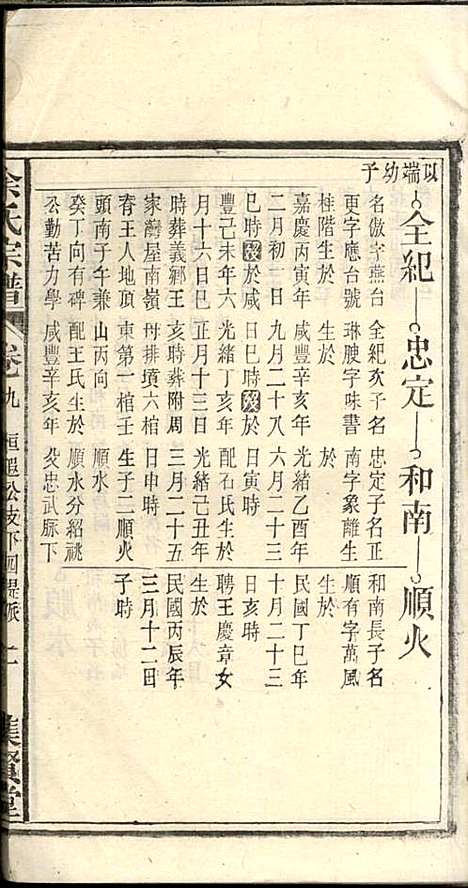 以端幼子
全紀
忠定
和南
順火
名倣字燕台
更字應台號
桂階生於
嘉慶丙寅年
二月初三日
巳時歿於咸
豐己未年六
月十六日巳
時葬義鄉王
家灣屋南嶺
脊王人地頂
頭南子午兼
癸丁向有碑
公勤苦力學
全紀次子名
琳腴字味書
生於
咸豐辛亥年
九月二十八
日巳時歿於
光緒丁亥年
正月十三日
亥時葬附周
母排墳六棺
東第一棺壬
山丙向
配王氏生於
咸豐辛亥年
忠定子名正
南字象離生
於
光緒乙酉年
六月二十三
日寅時
配石氏生於
光緒己丑年
三月二十五
日申時
生子二順火
順水
順水分紹祧
忠武脈下
和南長子名
順有字萬風
生於
民國丁巳年
十月二十三
日亥時
聘王慶章女
生於
民國丙辰年
三月十二日
子時
余氏宗譜
卷之九
公支下四
二
集賢堂